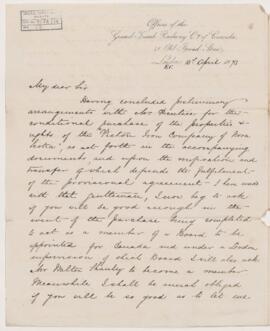 Offices of the
Grand Trunk Railway Co of Canada
21 Old Broad Street
London
E.C. April 1873
My dear Sir
Having concluded preliminary
arrangements with for the
conditional purchase of the properties &
rights of the Iron Company of Nova
Scotia, as set forth in the accompanying
documents and upon the inspection and
transfer of which depends the fulfilment
of the provisional agreement I have made
with that gentleman, I now beg to ask
if you will be good enough in the
event of the purchase being completed
to act as a member of a Board to be
appointed for Canada and under a London
supervision of which Board I will also ask
Mr Walter Shanly to become a member
Meanwhile I shall be much obliged
if you will be so good as to let me